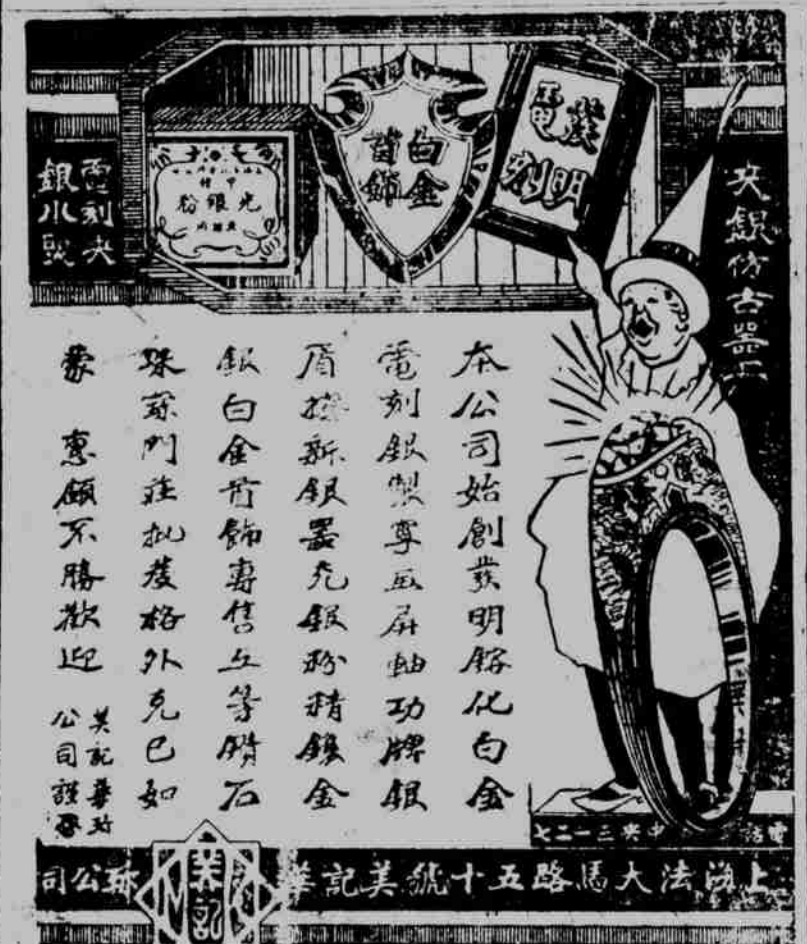 發明
電刻
白金
首飾
光銀粉
夾銀仿古器皿
本公司始創發明鎔化白金
電刻銀製尊玉屏軸功牌銀
盾摸新銀器光銀粉精鑲金
銀白金首飾專售上等鑽石
珠 門莊批發格外克已如
蒙 惠顧不勝歡迎
美記華珍
公司謹啓
電話 中央三一二七
上海法大馬路五十號美記華 公司
美記